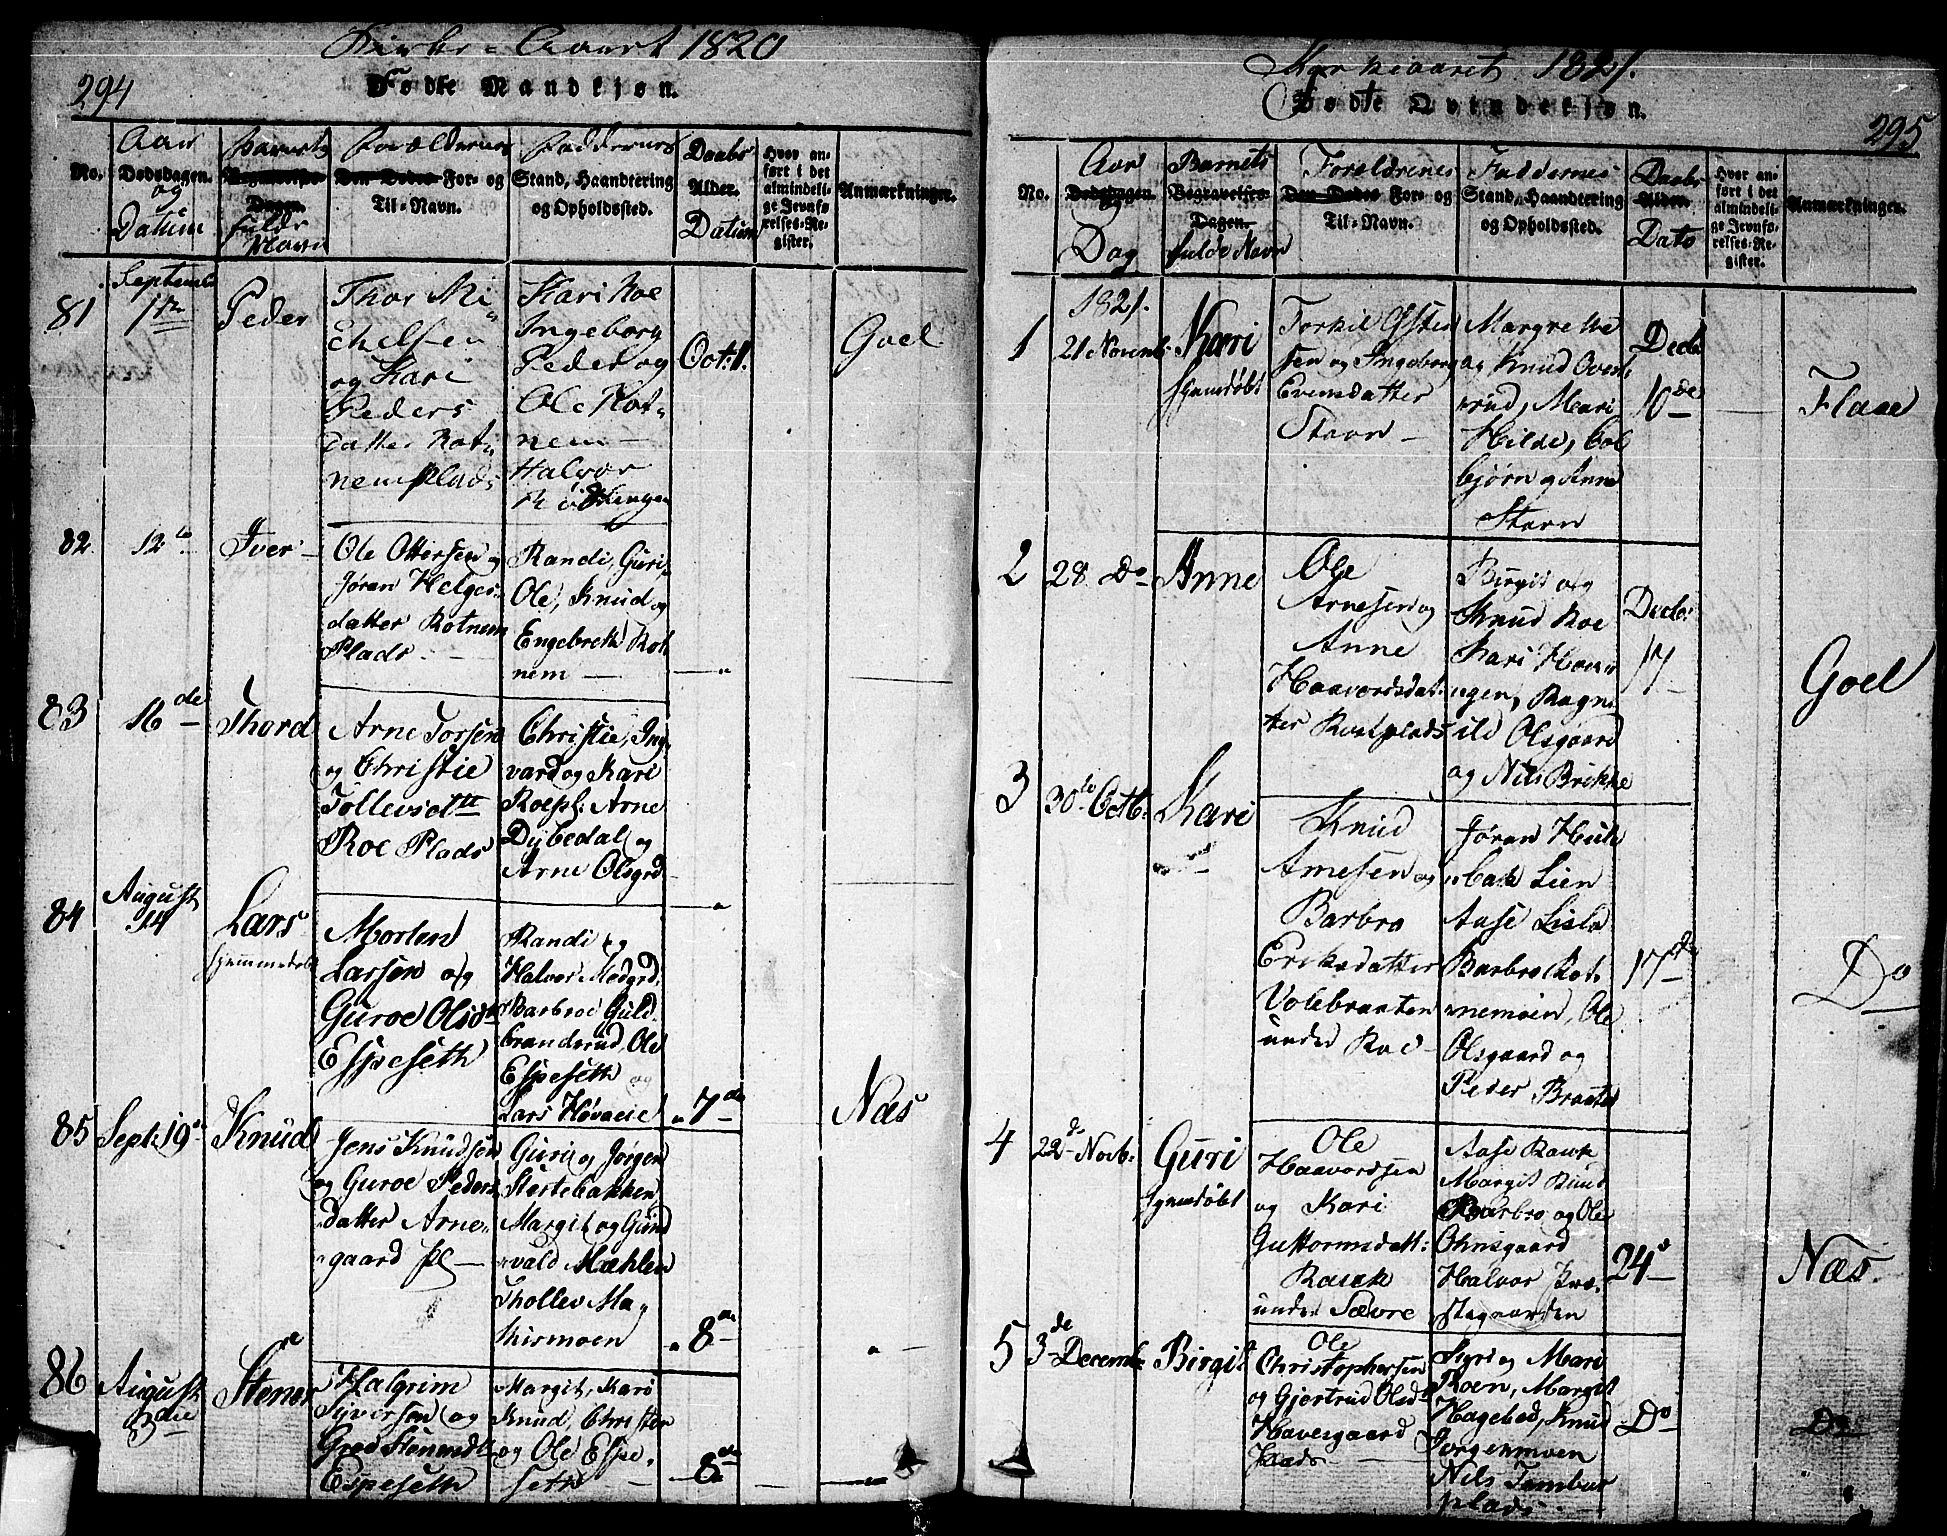 Kirke-Aaret 1820
294
Fødte Mandkjøn.
No.
Aar
Dødsdagen.
og
Datum
Barnets
Begravelses
Dagen.
fulde
Navn
Forældernes
Den Dødes For- og
Til-Navn.
Faddernes
Stand, Haandtering
og Opholdssted.
Daabs
Alder.
Datum
Hvor an-
ført i det
almindeli-
ge Jevnfø-
relses-Re-
gister.
Anmærkninger.
81
September
1ste
Peder
Thor Mi-
chelsen
og Kari
Peders
datter Rot-
nemplads
Kari Roe
Ingeborg
Peder og
Ole Rot-
nem
Halvor
Oct: 1.
Goel
82
12te
Iver
Ole Ottersen og
Jøran Helges-
datter Rotnem
Plads
Randi, Guri,
Ole, Knud og
Engebreth Rot
nem
83
16de
Thord
Arne Torsen
og Christie
Tollevsdtt
Roe Plads
Christie, Ing-
vard og Kari
Roepl: Arne
Dybedal og
Arne Olsgrd
84
August
14
Lars
hjemmedøbt
Morten
Larsen og
Guroe Olsdt
Espeseth
Randi og
Halvor Modgrd
Barbroe Guld-
brandsrud, Ole
Espeseth og
Lars Høvaeie
7de
Næs
85
Sept: 19de
Knud
Jens Knudsen
og Guroe Peders
datter Arne-
gaard pl
Guri og Jørgen
Støtebakken
Margit og Gund
vald Mæhlen
Thollev Ma-
thismoen
8de
86
August
3die
Stener
Halgrim
Syversen og
Groe Stenersdt
Espeseth
Margit, Kari
Knud, Christen
og Ole Espe-
seth
8de
Kirkeaaret 1821.
Fødte Qvindekjøn.
295
No.
Aar
Dødsdagen.
Dag
Barnets
Begravelses-
Dagen.
fulde Navn
Forældrenes
Den Dødes For- og
Til-Navn.
Faddernes
Stand, Haandtering
og Opholdssted.
Daabs
Alder.
Dato
Hvor an-
ført i det
almindeli-
ge Jevnfø-
relses-Re-
gister.
Anmærkninger.
1
1821.
21 Novemb:
Kari
hjemdøbt
Torkil Østen
sen og Ingeborg
Evensdatter
Stavn
Margrethe
og Knud Over-
rud, Mari
Hilde, Col
bjørn og Anne
Stavn
Decb
10de
Flaae
2
28 Do
Anne
Ole
Arnesen og
Anne
Haavordsdat-
ter Roeplads
Birgit og
Knud Roe
Kari Hoven-
gen, Ragn-
ild Olsgaard
og Nils Brekke
Decb:
17
Goel
3
30te Octb:
Kari
Knud
Arnesen og
Barbro
Eriksdatter
Volebraaten
under Roe
Jøran Huk
bak Lien
Aase Lislo
Barbro Rot-
nemoen, Ole
Olsgaard og
Peder Braaten
17de
Do
4
22de Novb:
Guri
hjemdøbt
Ole
Haavordsen
og Kari
Guttormsdatt:
Rauk
under Sævre
Aase Rauk
Margit Ruud
Barbro og Ole
Ohnsgaard
Halvor Præ-
stegaarden
24de
Næs.
5
3de Decemb:
Birgit
Ole
Christophersen
og Gjertrud Olsdt
Haversgaard
Plads
Syri og Mari
Roen, Margit
Hagebed, Knud
Jorgenmoen
Nils Tambur
plads
Do
Do